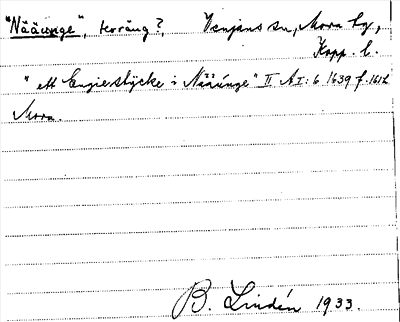 "Nääunge", terräng?, Venjans sn, Mora tg,
Kopp. l.
"ett Engiestÿcke i Nääúnge" II AI: 6 1639 f. 1612
Mora.
B. Lindén 1933.